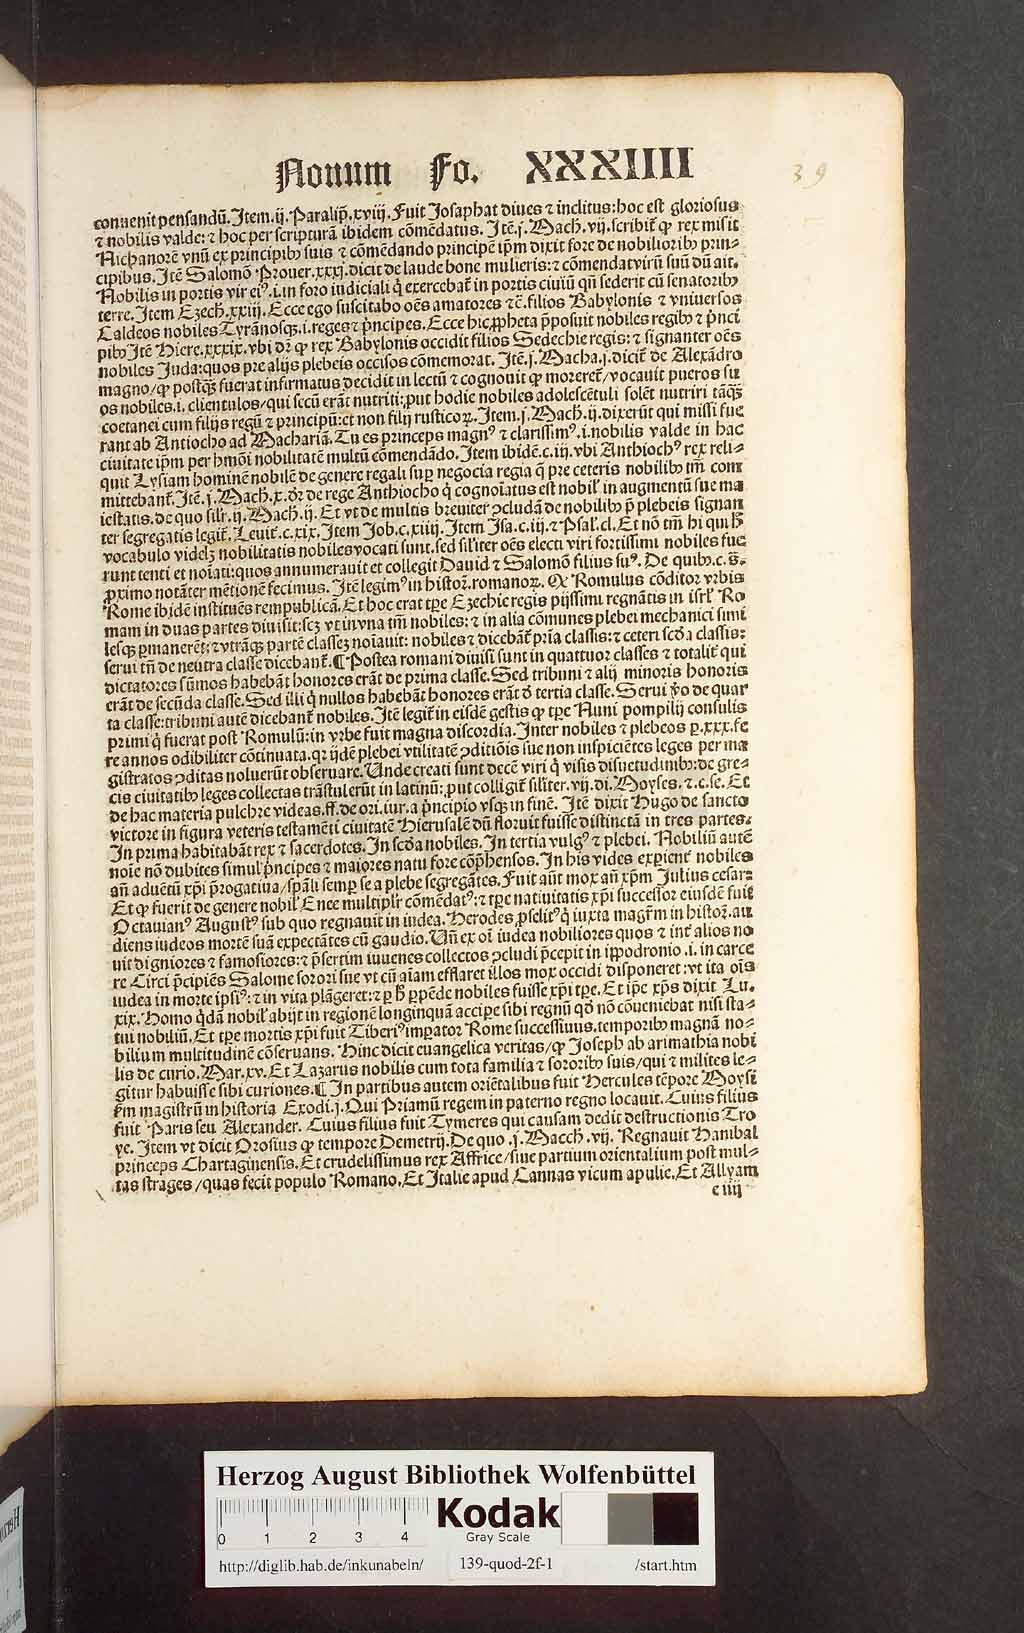 Nonum Fo. XXXIIII
39
conuenit pensandũ. Itẽ .ij. Paralip̃. xviij. Fuit Iosaphat diues ⁊ inclitus: hoc est gloriosus
⁊ nobilis valde: ⁊ hoc per scripturã ibidem cõmẽdatus. Itẽ .j. Mach. vij. scribit̃ ꝙ rex misit
Nichanorẽ vnũ ex principibꝰ suis ⁊ cõmẽdando principẽ ip̃m dixit fore de nobilioribꝰ prin-
cipibus. Itẽ Salomõ Prouer. xxxj. dicit de laude bone mulieris: ⁊ cõmendat virũ suũ dũ ait.
Nobilis in portis vir eiꝰ. i. in foro iudiciali q̃ exercebat̃ in portis ciuiũ qñ sederit cũ senatoribꝰ
terre. Item Ezech. xxiij. Ecce ego suscitabo oẽs amatores ⁊c̃. filios Babylonis ⁊ vniuersos
Caldeos nobiles Tyrãnosqꝫ. i. reges ⁊ p̃ncipes. Ecce hic ꝓpheta p̃posuit nobiles regibꝰ ⁊ p̃nci
pibꝰ Itẽ Hiere. xxxix. vbi dr̃ ꝙ rex Babylonis occidit filios Sedechie regis: ⁊ signanter oẽs
nobiles Iuda: quos pre alijs plebeis occisos cõmemorat. Itẽ .j. Macha. j. dicit̃ de Alexãdro
magno/ ꝙ postqꝫ̃ fuerat infirmatus decidit in lectũ ⁊ cognouit ꝙ moreret̃/ vocauit pueros su
os nobiles. i. clientulos/ qui secũ erãt nutriti: ꝓut hodie nobiles adolescẽtuli solẽt nutriri tãqꝫ̃
coetanei cum filijs regũ ⁊ principũ: et non filij rusticoꝝ. Item .j. Mach. ij. dixerũt qui missi fue
rant ab Antiocho ad Machariã. Tu es princeps magnꝰ ⁊ clarissimꝰ. i. nobilis valde in hac
ciuitate ip̃m per hmõi nobilitatẽ multũ cõmendãdo. Item ibidẽ. c. iij. vbi Anthiochꝰ rex reli-
quit Lysiam hominẽ nobilẽ de genere regali suꝑ negocia regia q̃ pre ceteris nobilibꝰ tm̃ com
mittebant̃. Itẽ .j. Mach. x. dr̃ de rege Anthiocho q̃ cognoĩatus est nobil̃ in augmentũ sue ma
iestatis. de quo sil̃r. ij. Mach. ij. Et vt de multis breuiter ꝯcludã de nobilibꝰ p̃ plebeis signan
ter segregatis legit̃. Leuit̃. c. xix. Item Iob. c. xiiij. Item Isa. c. iij. ⁊ Psal̃. cl. Et nõ tm̃ hi qui
vocabulo videlꝫ nobilitatis nobiles vocati sunt. sed sil̃iter oẽs electi viri fortissimi nobiles fue
runt tenti et noĩati: quos annumerauit et collegit Dauid ⁊ Salomõ filius suꝰ. De quibꝰ. c.
ꝓximo notãter mẽtionẽ fecimus. Itẽ legimꝰ in histoꝝ. romanoꝝ. Romulus cõditor vrbis
Rome ibidẽ instituẽs rempublicã. Et hoc erat tꝑe Ezechie regis pijssimi regnãtis in isrl̃ Ro
mam in duas partes diuisit: scꝫ vt in vna tm̃ nobiles: ⁊ in alia cõmunes plebei mechanici simi
lesqꝫ ꝑmanerẽt: ⁊ vtrãqꝫ partẽ classeꝫ noĩauit: nobiles ⁊ dicebãt̃ pr̃ia classis: ⁊ ceteri scd̃a classis:
serui tñ de neutra classe dicebant̃. ¶ Postea romani diuisi sunt in quattuor classes ⁊ totalit̃ qui
dictatores sũmos habebãt honores erãt de prima classe. Sed tribuni ⁊ alij minoris honoris
erãt de secũda classe. Sed illi q̃ nullos habebãt honores erãt d̃ tertia classe. Serui ṽo de quar
ta classe: tribuni autẽ dicebant̃ nobiles. Itẽ legit̃ in eisdẽ gestis ꝙ tꝑe Numi pompilij consulis
primi q̃ fuerat post Romulũ: in vrbe fuit magna discordia. Inter nobiles ⁊ plebeos ꝑ. xxx. fe
re annos odibiliter cõtinuata. qꝛ q̃dẽ plebei vtilitatẽ ꝯditiõis sue non inspiciẽtes leges per ma
gistratos ꝯditas noluerũt obseruare. Unde creati sunt decẽ viri q̃ visis disuetudinibꝰ: de gre-
cis ciuitatibꝰ leges collectas trãstulerũt in latinũ: ꝓut colligit̃ sil̃iter. vij. di. Moyses. ⁊. c. se. Et
de hac materia pulchre videas. ff. de ori. iur. a p̃ncipio vsqꝫ in finẽ. Itẽ dixit Hugo de sancto
victore in figura veteris testamẽti ciuitatẽ Hierusalẽ dũ floruit fuisse distinctã in tres partes.
In prima habitabãt rex ⁊ sacerdotes. In scd̃a nobiles. In tertia vulgꝰ ⁊ plebei. Nobiliũ autẽ
noĩe nõ dubites simul p̃ncipes ⁊ maiores natu fore cõp̃hensos. In his vides expient̃ nobiles
añ aduẽtũ xp̃i p̃rogatiua/ sp̃ali semꝑ se a plebe segregãtes. Fuit aũt mox añ xp̃m Julius cesar:
Et ꝙ fuerit de genere nobil̃ Enee multipl̃r cõmẽdatꝰ: ⁊ tꝑe natiuitatis xp̃i successor eiusdẽ fuit
Octauianꝰ Augustꝰ sub quo regnauit in iudea. Herodes ꝓselitꝰ q̃ iuxta magr̃m in histoꝝ. au
diens iudeos mortẽ suã expectãtes cũ gaudio. Uñ ex oĩ iudea nobiliores quos ⁊ int̃ alios no
uit digniores ⁊ famosiores: ⁊ p̃sertim iuuenes collectos ꝯcludi p̃cepit in ippodronio. i. in carce
re Circi p̃cipiẽs Salome sorori sue vt cũ aĩam efflaret illos mox occidi disponeret: vt ita oĩs
iudea in morte ipsiꝰ: ⁊ in vita plãgeret: ⁊ ꝑ ꝑpẽde nobiles fuisse xp̃i tꝑe. Et ip̃e xp̃s dixit Lu.
xix. Homo q̃dã nobil̃ abijt in regionẽ longinquã acciꝑe sibi regnũ qd̃ nõ cõueniebat nisi sta-
tui nobiliũ. Et tꝑe mortis xp̃i fuit Tiberiꝰ imꝑator Rome successiuus. temporibꝰ magnã no-
bilium multitudinẽ cõseruans. Hinc dicit euangelica veritas/ ꝙ Joseph ab arimathia nobi
lis de curio. Mar. xv. Et Lazarus nobilis cum tota familia ⁊ sororibꝰ suis/ qui ⁊ milites le-
gitur habuisse sibi curiones. ¶ In partibus autem oriẽtalibus fuit Hercules tẽpore Moysi
km̃ magistrũ in historia Exodi. j. Qui Priamũ regem in paterno regno locauit. Cuius filius
fuit Paris seu Alexander. Cuius filius fuit Tymeres qui causam dedit destructionis Tro
ye. Item vt dicit Orosius ꝙ tempore Demetrij. De quo .j. Macch. vij. Regnauit Hanibal
princeps Chartaginensis. Et crudelissimus rex Affrice/ siue partium orientalium post mul-
tas strages/ quas fecit populo Romano. Et Italie apud Cannas vicum apulie. Et Allyam
e iiij
Herzog August Bibliothek Wolfenbüttel
0 1 2 3 4
Kodak
Gray Scale
http://diglib.hab.de/inkunabeln/ 139-quod-2f-1 /start.htm